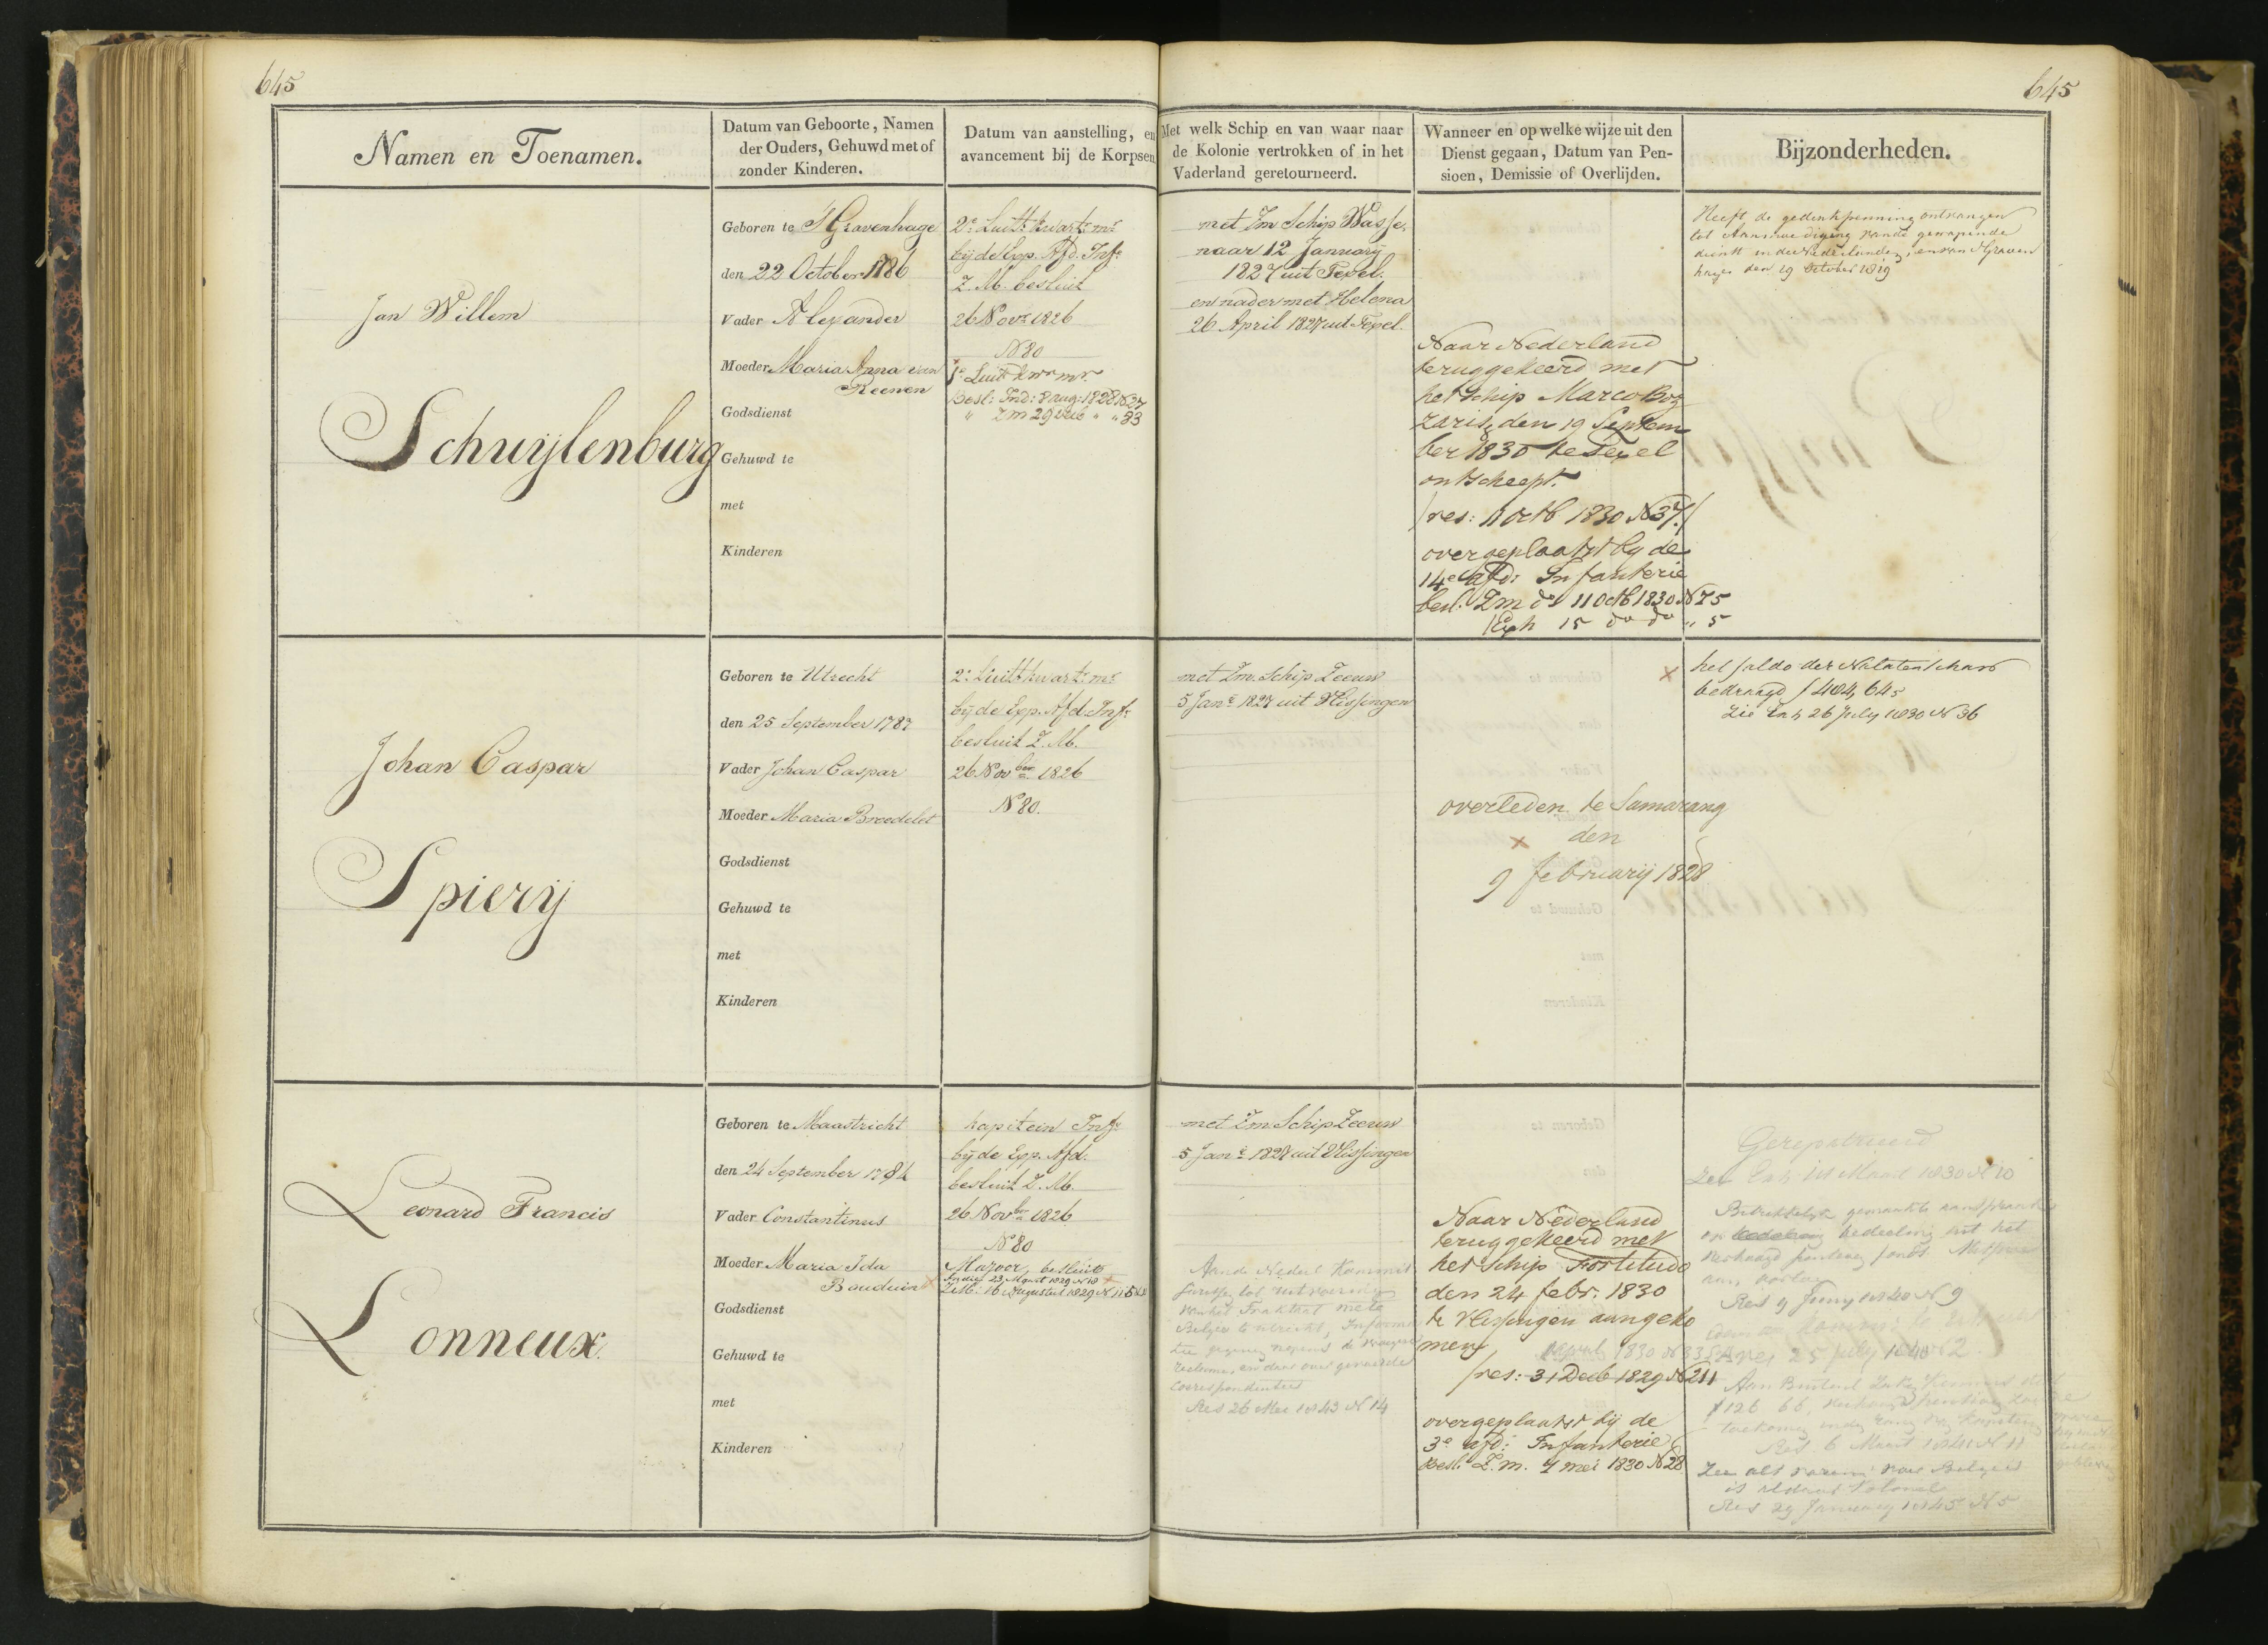 645
645
Namen en Toenamen.
Datum van Geboorte, Namen
der Ouders, Gehuwd met of
zonder Kinderen.
Datum van aanstelling, en
avancement bij de Korpsen
Met welk Schip en van waar naar
de Kolonie vertrokken of in het
Vaderland geretourneerd.
Wanneer en op welke wijze uit den
Dienst gegaan, Datum van Pen-
sioen, Demissie of Overlijden.
Bijzonderheden.
Jan Willem
Schuijlenburg
Geboren te S'Gravenhage
den 22 October 1786
Vader Alexander
Moeder Maria Anna van
Reenen
Godsdienst
Gehuwd te
met
Kinderen
2e Luitt kwartr mr
bij de Exp. Afd. Infe
Z. M. besluit
26 Novr 1826
No 80
1e Luitt kwr mr
besl: Ind: 8 aug: 1828 No 27
" Z m 29 " " 83
met Zm Schip Wasse,
naar 12 Januarij
1827 uit Texel.
en nader met Helena
26 April 1827 uit Texel.
Naar Nederland
teruggekeerd met
het schip Marco Boz
zaris, den 19 Septem
ber 1830 te Texel
ontscheept.
/res: 11 octb 1830 No 37./
overgeplaatst by de
14e afd: Infanterie
besl. Z m do 11 Octb 1830 No 75
15 do do " 5
Heeft de gedenkpenning ontvangen
tot Aanmoediging van de gewapende
dienst in de Nederlanden, en van S'Graven
hage den 19 October 1819
Johan Caspar
Spierij
Geboren te Utrecht
den 25 September 1787
Vader Johan Caspar
Moeder Maria Broedelet
Godsdienst
Gehuwd te
met
Kinderen
2e Luitt kwartr mr
bij de Exp. Afd. Infe
besluit Z. M.
26 Novber 1826
No 80.
met Zm. Schip Zeeuw
5 Jane 1827 uit Vlissingen
overleden te Samarang
x den
9 februarij 1828
x het saldo der Nalatenschap
bedraagd f 404, 645
Zie Exh 26 July 1830 No 36
Leonard Francis
Lonneux.
Geboren te Maastricht
den 24 September 1784
Vader Constantinus
Moeder Maria Ida
Bauduin
Godsdienst
Gehuwd te
met
Kinderen
kapitein Infe
bij de Exp. Afd.
besluit Z. M.
26 Novber 1826
No 80
Majoor, besluit
Indie 23 Maart 1829 No 18
Z.M. 16 Augustus 1829 No 115
met Zm Schip Zeeuw
5 Jane 1827 uit Vlissingen
Aan de Nederl Kommis
tot uitvoering
van het Traktaat met
Belgie te Utrecht,
correspondentie
Res 26 Mei 1843 No 14
Naar Nederland
teruggekeerd met
het schip Fortitudo
den 24 febr. 1830
te Vlissingen aangeko
men
/res: 31 Decb 1829 No 211
overgeplaatst bij de
3e afd: Infanterie
Besl: Z.m. 7 mei 1830 No 28
Gerepatrieerd
Zie Exh Maart 1830 No 10
bedeeling uit het
Res 9 Juny 1840 No 9
Res 25 July 1840 No 2
Res 6 Maart 1841 No 11
Res 29 January 1845 No 5